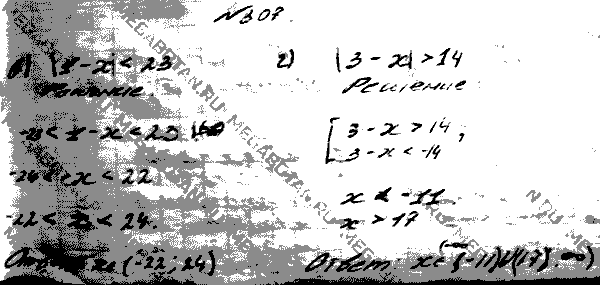 N 807.
в) |1 - x| < 23
Решение.
-23 < 1 - x < 23
-24 < -x < 22
-22 < x < 24.
Ответ: x ∈ (-22; 24)
г) |3 - x| > 14
Решение
[ 3 - x > 14,
3 - x < -14
x < -11.
x > 17
Ответ: x ∈ (-∞; -11) ∪ (17; ∞)